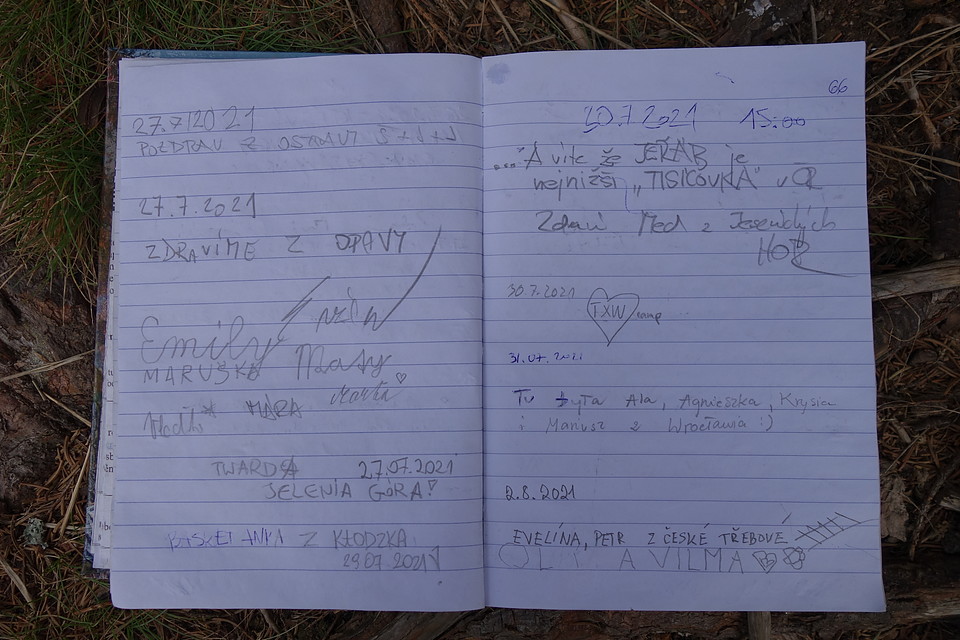 27.7.2021
POZDRAV Z OSTRAVY S + J + J
27.7.2021
ZDRAVÍME Z OPAVY
Emily
MARUŠKA Maty
MÁRA
TWARDA 27.07.2021
JELENIA GÓRA!
Z KŁODZKA
29.07.2021
66
20.7.2021 15:00
..." A víte že JEŘÁB je
nejnižší „TISICOVKA" v
Zdraví Med z Jesenických
HOR
30.7.2021
TXW camp
31.07.2021
Tu była Ala, Agnieszka, Krysia
i Mariusz z Wrocławia :)
2.8.2021
EVELÍNA, PETR Z ČESKÉ TŘEBOVÉ
A VILMA